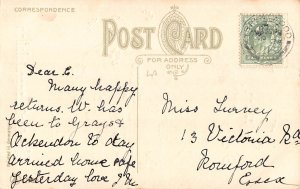 CORRESPONDENCE
POST CARD
FOR ADDRESS
ONLY
Dear E.
Many happy
returns. W. has
been to Grays &
Ockendon to day
arrived home safe
yesterday love
Miss Survey
13 Victoria Rd
Romford
Essex